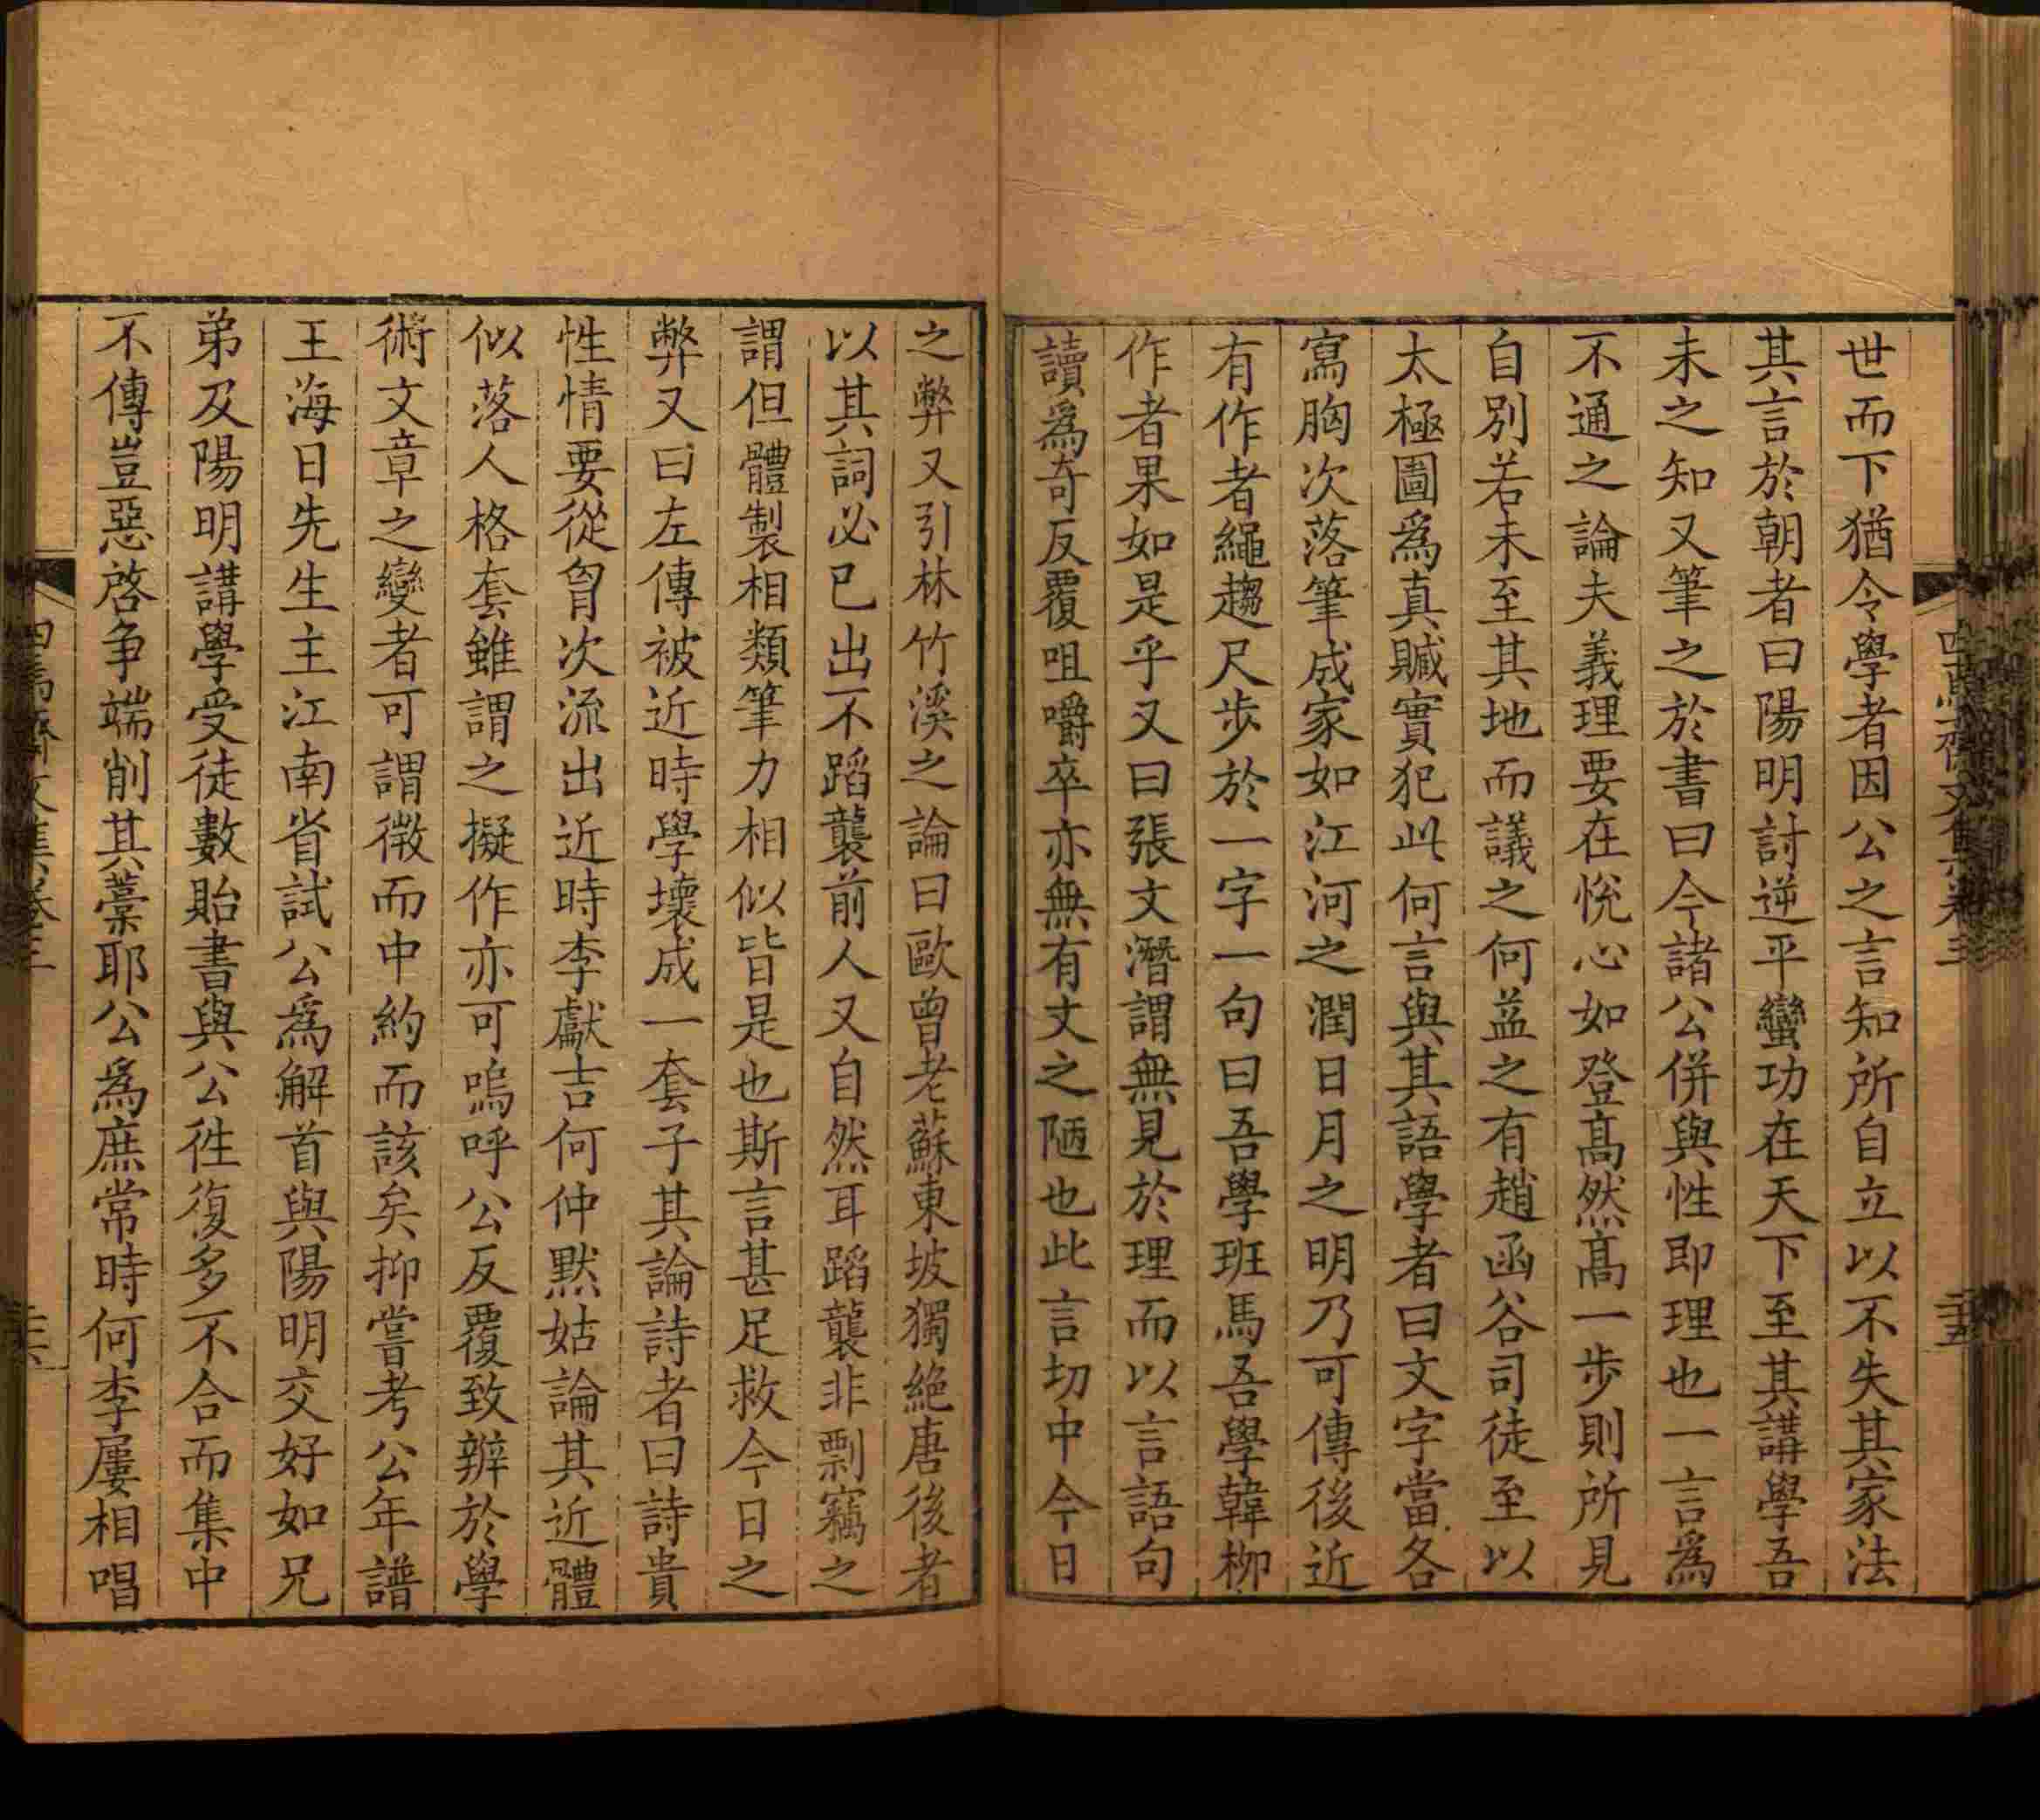 世而下猶令學者因公之言知所自立以不失其家法
其言於朝者曰陽明討逆平蠻功在天下至其講學吾
未之知又筆之於書曰今諸公併與性即理也一言爲
不通之論夫義理要在悅心如登高然高一步則所見
自別若未至其地而議之何益之有趙函谷司徒至以
太極圖爲真贓實犯此何言與其語學者曰文字當各
寫胸次落筆成家如江河之潤日月之明乃可傳後近
有作者繩趨尺步於一字一句曰吾學班馬吾學韓柳
作者果如是乎又曰張文潛謂無見於理而以言語句
讀爲奇反覆咀嚼卒亦無有文之陋也此言切中今日
之弊又引林竹溪之論曰歐曾老蘇東坡獨絶唐後者
以其詞必已出不蹈襲前人又自然耳蹈襲非剽竊之
謂但體製相類筆力相似皆是也斯言甚足救今日之
弊又曰左傳被近時學壞成一套子其論詩者曰詩貴
性情要從胷次流出近時李獻吉何仲默姑論其近體
似落人格套雖謂之擬作亦可嗚呼公反覆致辨於學
術文章之變者可謂徴而中約而該矣抑嘗考公年譜
王海日先生主江南省試公爲解首與陽明交好如兄
弟及陽明講學受徒數貽書與公徃復多不合而集中
不傳豈惡啓争端削其藁耶公爲庶常時何李屢相唱
四焉齋文集卷三